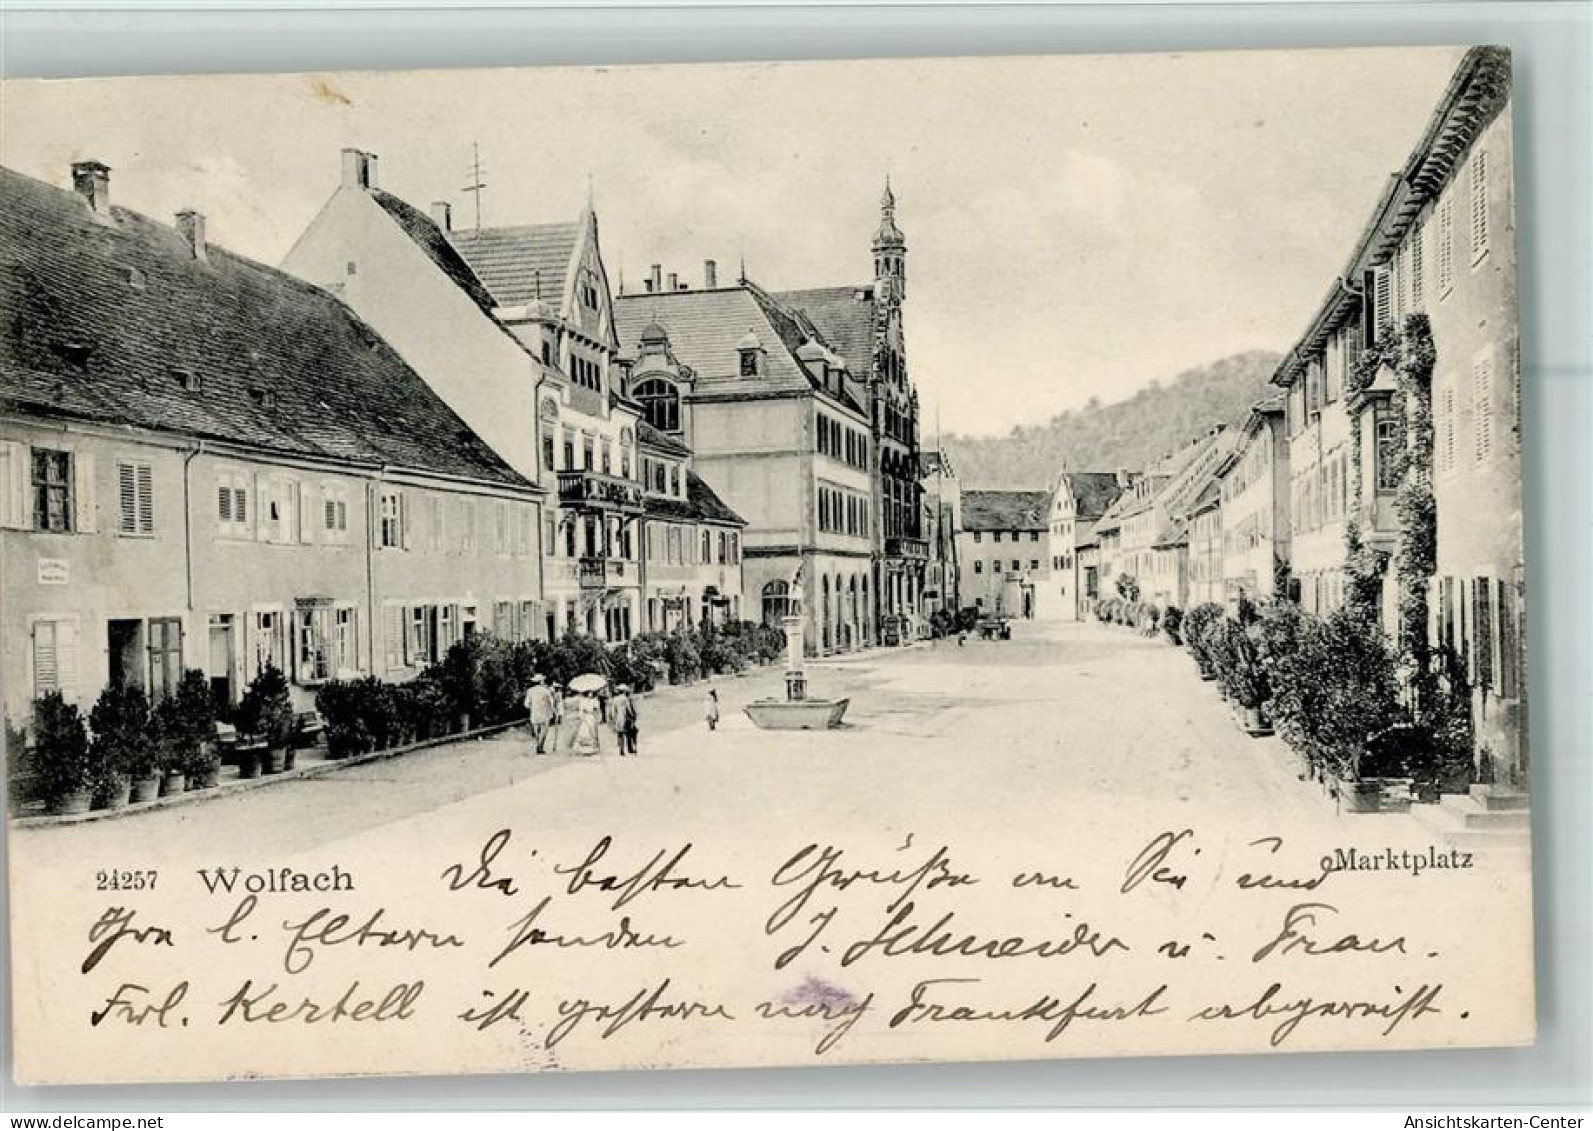 24257 Wolfach Die besten Grüße an Sie und Marktplatz
Ihre l. Eltern senden J. Schneider u. Frau.
Frl. Kertell ist gestern nach Frankfurt abgereist.
www.delcampe.net
AnsichtsKarten-Center